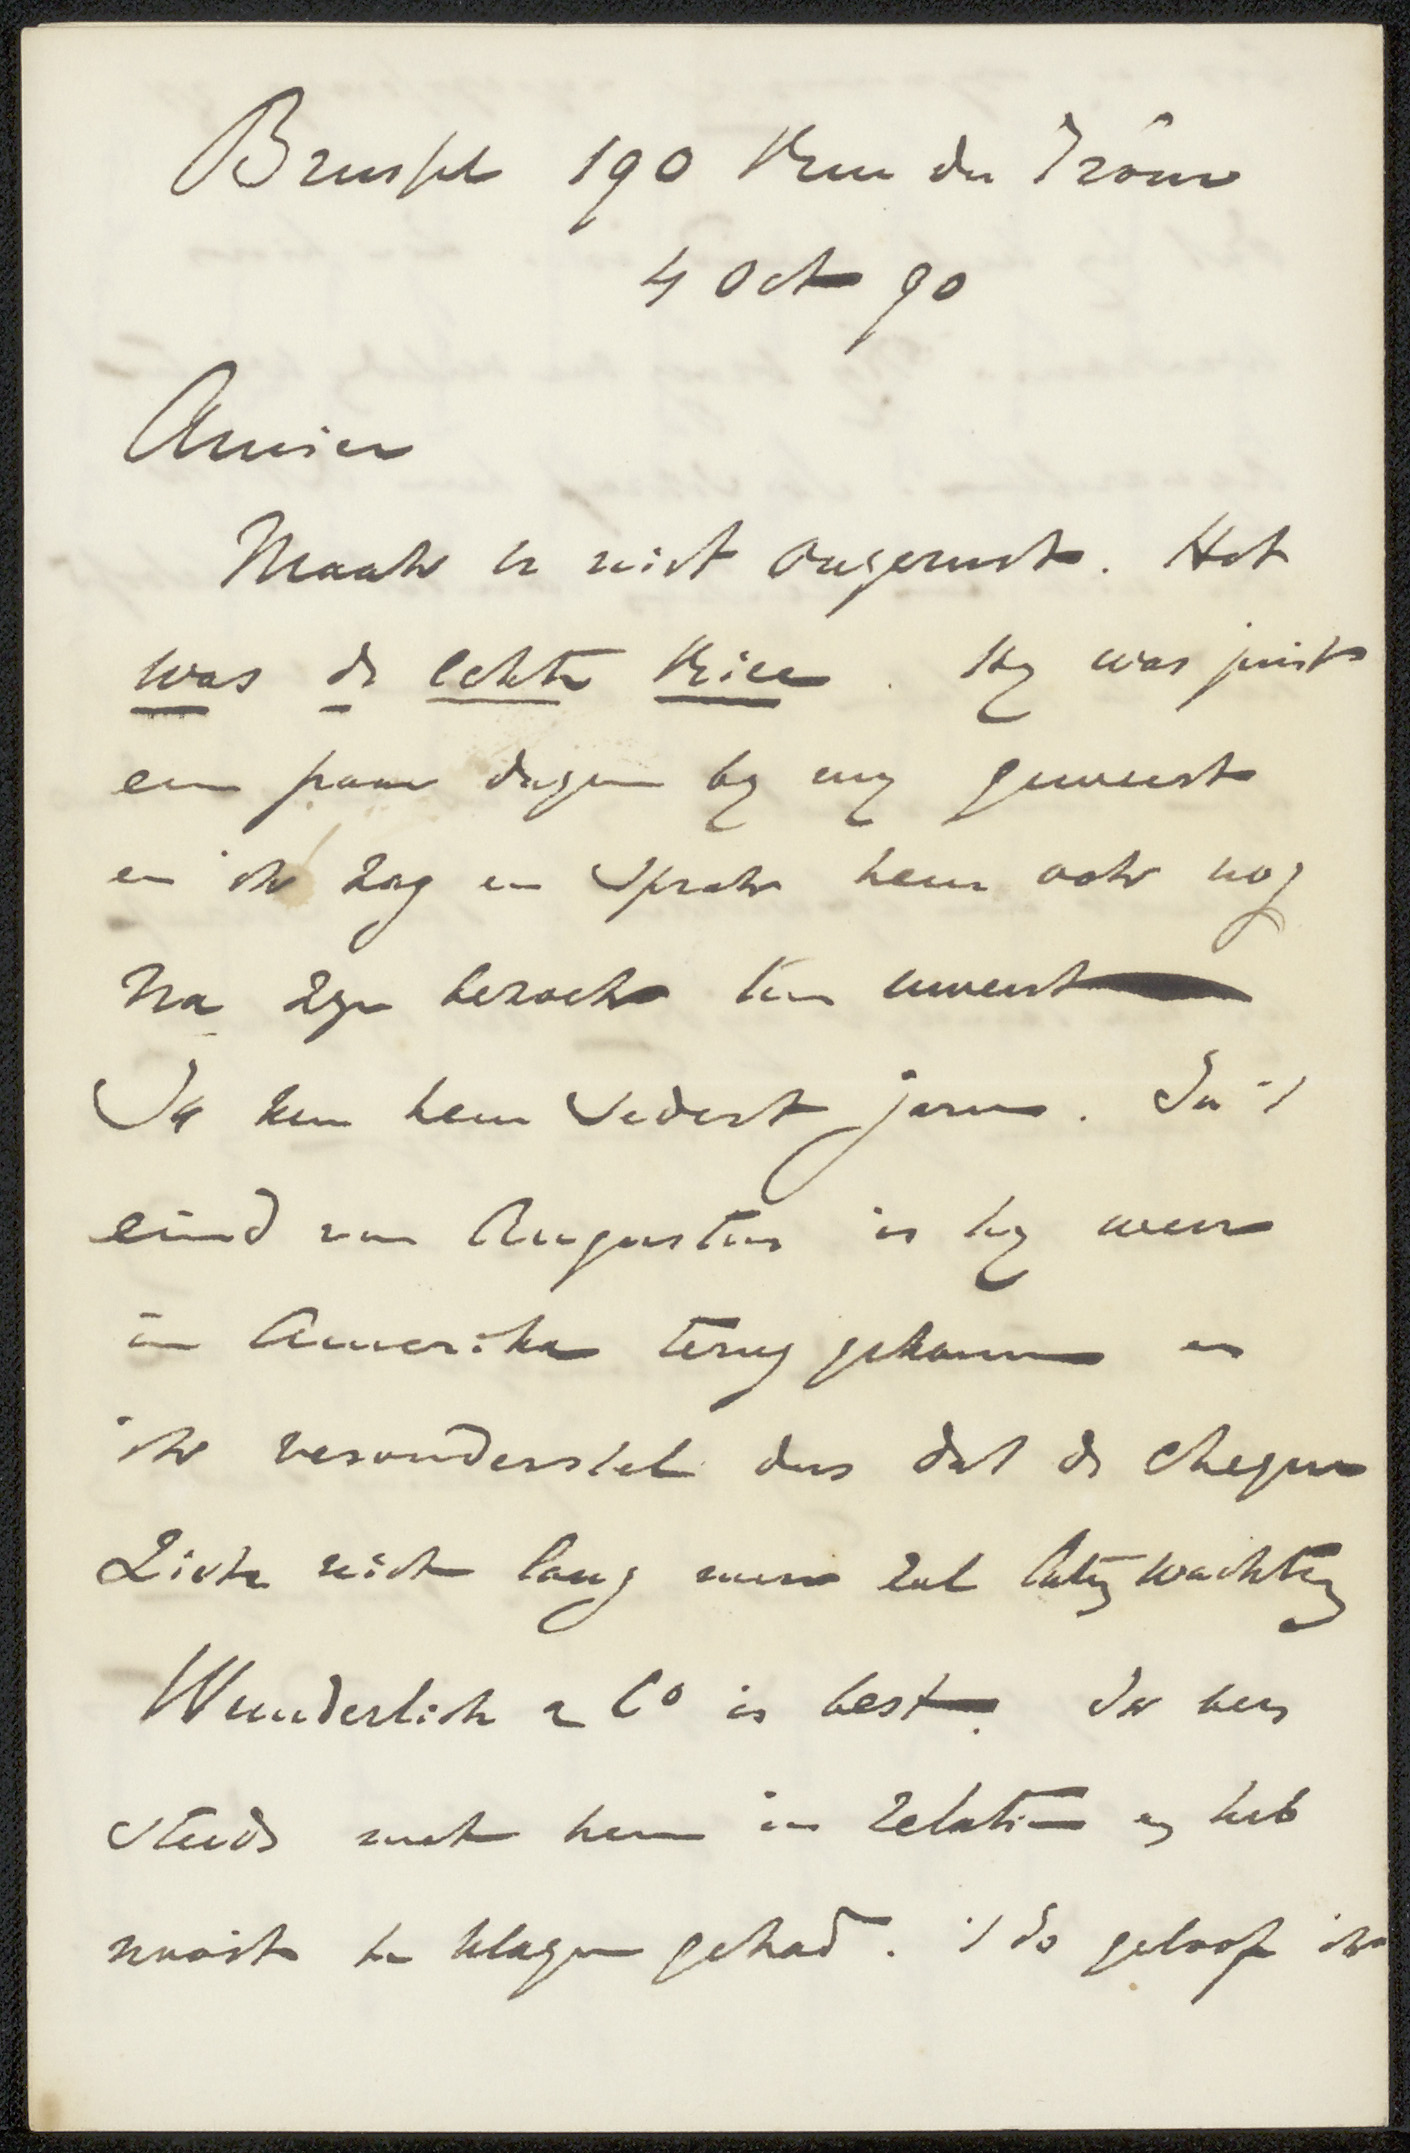 Brussel 190 Rue du Trône
4 Oct 90
Amice
Maak U niet ongerust. Het
was de echte Rice. Hy was juist
een paar dagen by my geweest
en ik zag en sprak hem ook nog
na zyn bezoek ten uwent
Ik ken hem sedert jaren. In 't
eind van Augustus is hy weer
in Amerika terug gekomen en
ik veronderstel dus dat de cheque
zich niet lang meer zal laten wachten
Wunderlich & Co is best. Ik ben
steeds met hem in relatie en heb
nooit te klagen gehad. 't Is geloof ik